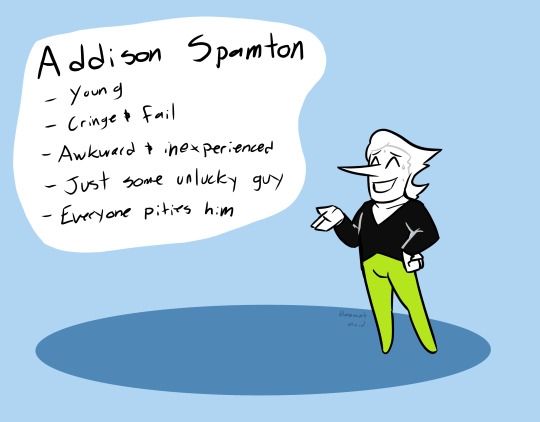 Addison Spamton
- Young
- Cringe & Fail
- Awkward & inexperienced
- Just some unlucky guy
- Everyone pities him